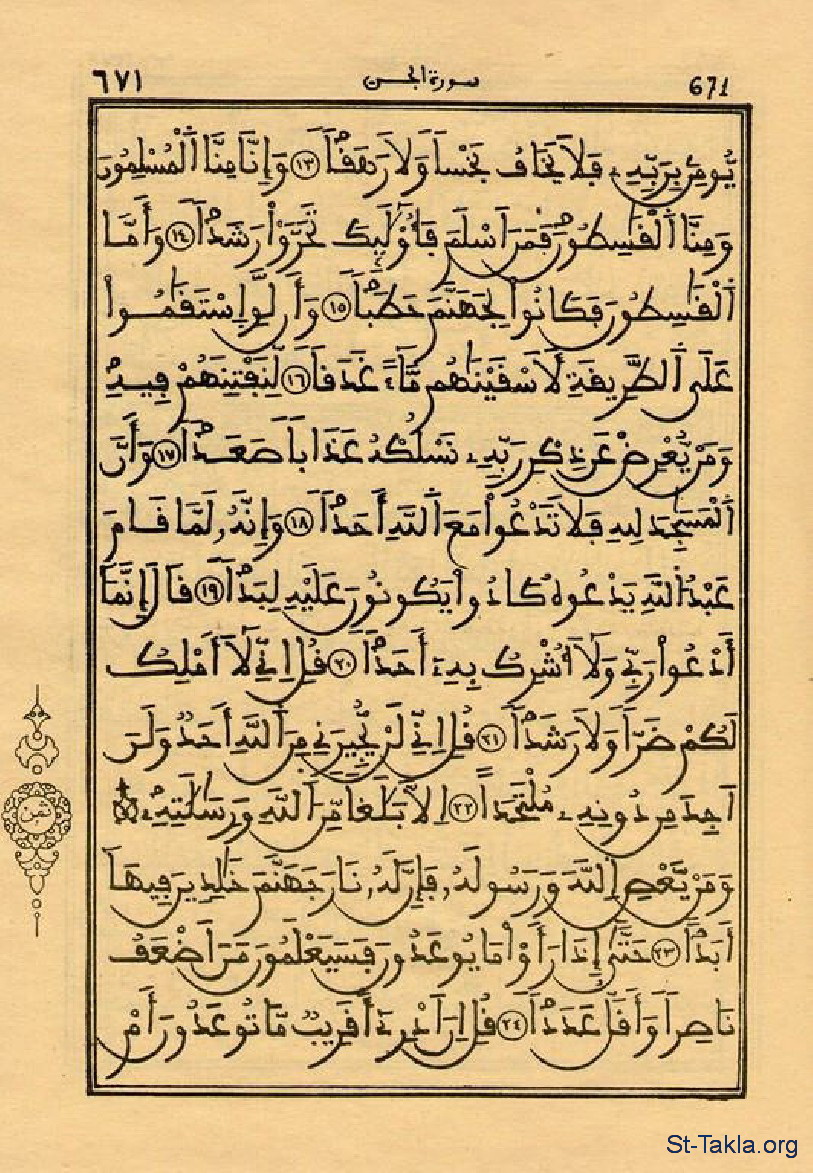 ٦٧١ سورة الجن 671
يُّومِنۢ بِرَبِّهِۦ فَلَا يَخَافُ بَخْساً وَلَا رَهَقاً ١٣ وَإِنَّا مِنَّا اَ۬لْمُسْلِمُونَ
وَمِنَّا اَ۬لْقَٰسِطُونَ فَمَنَ اَسْلَمَ فَأُوْلَٰٓئِكَ تَحَرَّوْاْ رَشَداً ١٤ وَأَمَّا
اَ۬لْقَٰسِطُونَ فَكَانُواْ لِجَهَنَّمَ حَطَباً ١٥ وَأَن لَّوِ اِسْتَقَٰمُواْ
عَلَى اَ۬لطَّرِيقَةِ لَأَسْقَيْنَٰهُم مَّآءً غَدَقاً ١٦ لِّنَفْتِنَهُمْ فِيهِ
وَمَنْ يُّعْرِضْ عَن ذِكْرِ رَبِّهِۦ نَسْلُكْهُ عَذَاباً صَعَداً ١٧ وَأَنَّ
اَ۬لْمَسَٰجِدَ لِلهِ فَلَا تَدْعُواْ مَعَ اَ۬للَّهِ أَحَداً ١٨ وَإِنَّهُۥ لَمَّا قَامَ
عَبْدُ اُ۬للَّهِ يَدْعُوهُ كَادُواْ يَكُونُونَ عَلَيْهِ لِبَداً ١٩ قَالَ إِنَّمَآ
أَدْعُواْ رَبِّي وَلَآ أُشْرِكُ بِهِۦٓ أَحَداً ٢٠ قُلِ اِنِّي لَآ أَمْلِكُ
لَكُمْ ضَرّاً وَلَا رَشَداً ٢١ قُلِ اِنِّي لَنْ يُّجِيرَنِي مِنَ اَ۬للَّهِ أَحَدٌ وَلَنَ
اَجِدَ مِن دُونِهِۦ مُلْتَحَداً ٢٢ اِلَّا بَلَٰغاً مِّنَ اَ۬للَّهِ وَرِسَٰلَٰتِهِۦ
وَمَنْ يَّعْصِ اِ۬للَّهَ وَرَسُولَهُۥ فَإِنَّ لَهُۥ نَارَ جَهَنَّمَ خَٰلِدِينَ فِيهَآ
أَبَداً ٢٣ حَتَّىٰٓ إِذَا رَأَوْاْ مَا يُوعَدُونَ فَسَيَعْلَمُونَ مَنَ اَضْعَفُ
نَاصِراً وَأَقَلُّ عَدَداً ٢٤ قُلِ اِنَ اَدْرِےٓ أَقَرِيبٌ مَّا تُوعَدُونَ أَمْ
ثمن
St-Takla.org